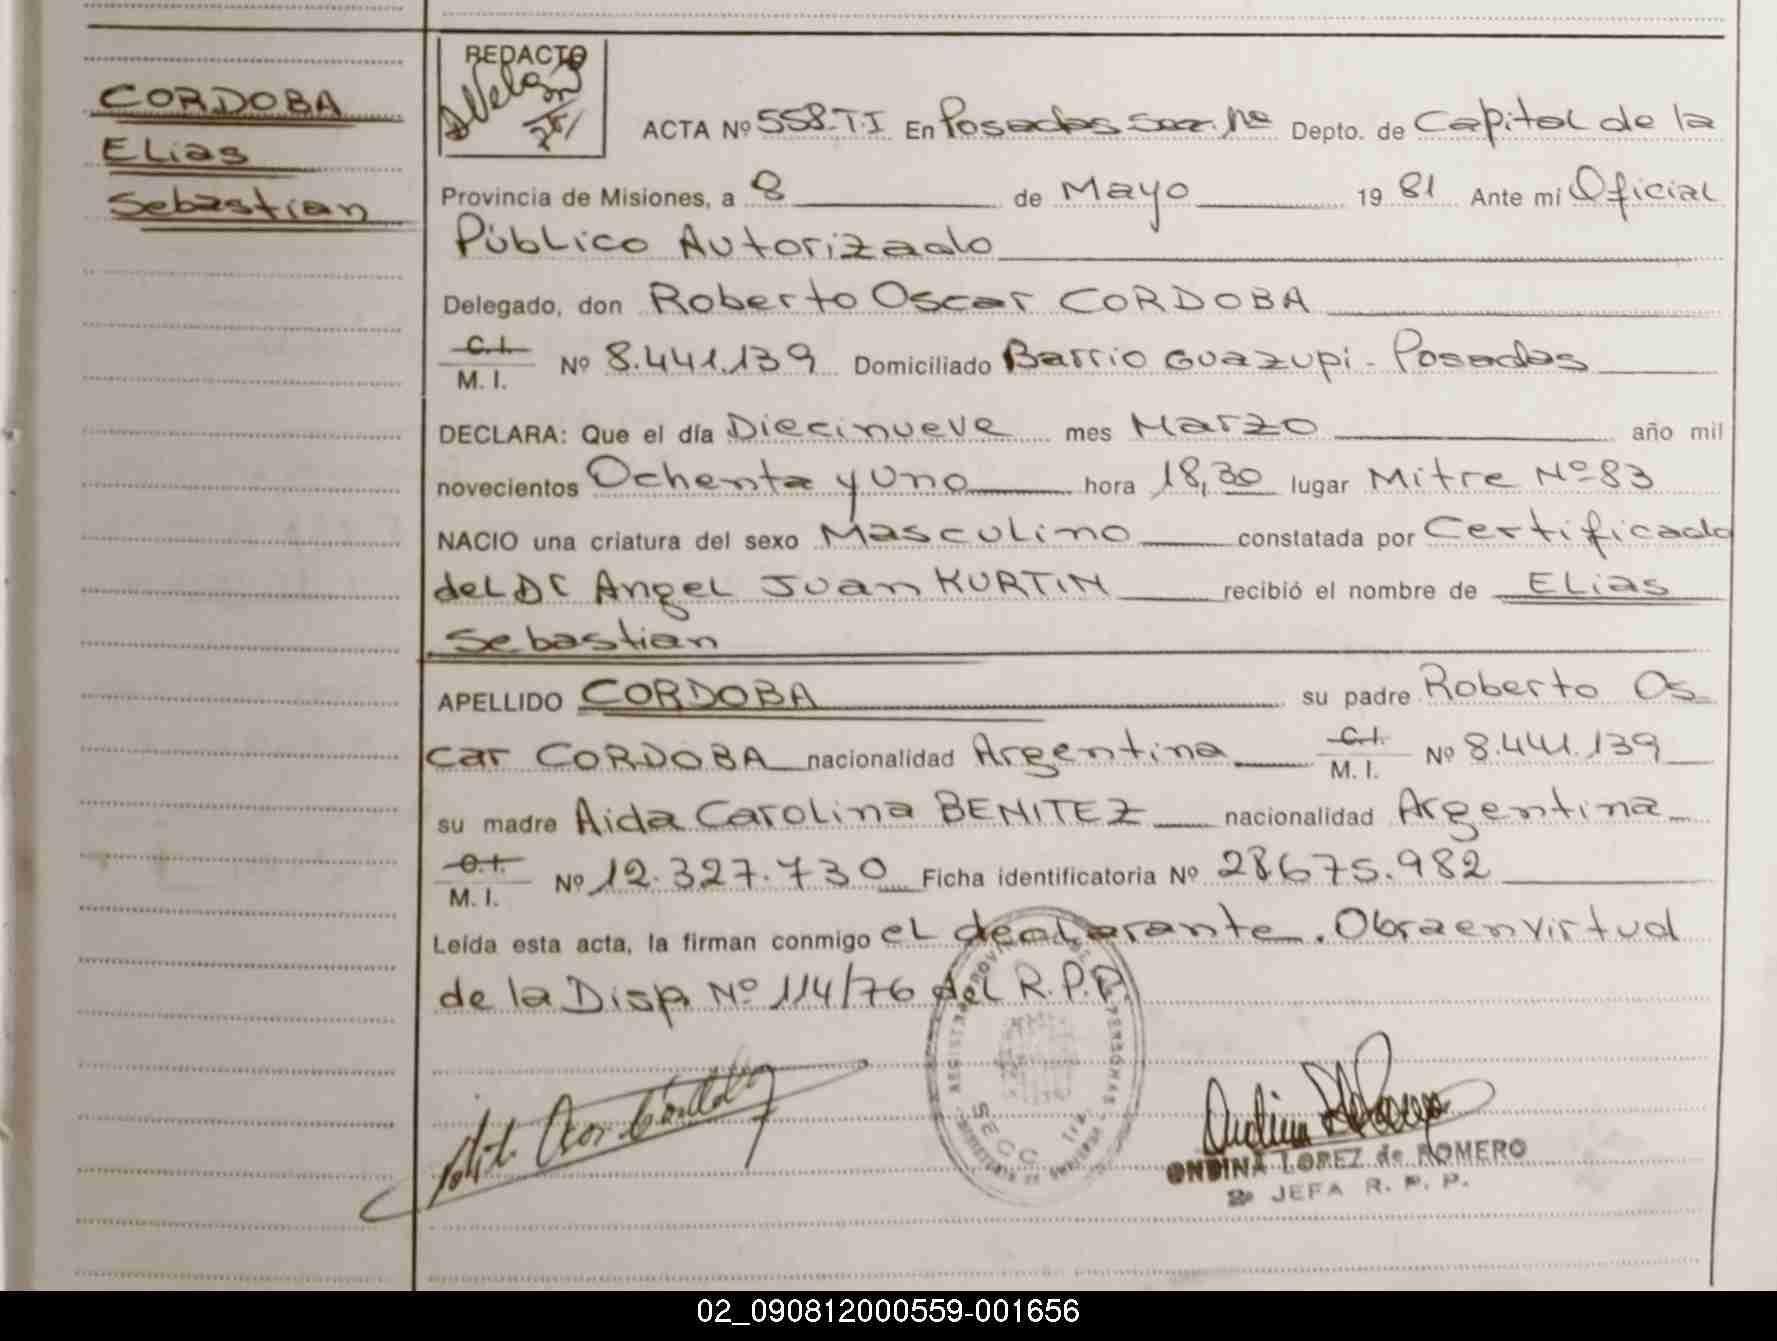 CORDOBA
Elias
Sebastian
REDACTO
ACTA Nº 558.T.I En Posadas Secc. 1ª Depto. de Capital de la
Provincia de Misiones, a 8 de Mayo 19 81 Ante mi Oficial
Público Autorizado
Delegado, don Roberto Oscar CORDOBA
C.I.
M. I. Nº 8.441.139 Domiciliado Barrio Guazupi - Posadas
DECLARA: Que el día Diecinueve mes Marzo año mil
novecientos Ochenta y Uno hora 18,30 lugar Mitre Nº 83
NACIO una criatura del sexo Masculino constatada por Certificado
del Dr Angel Juan KURTIN recibió el nombre de Elias
Sebastian
APELLIDO CORDOBA su padre Roberto Os
car CORDOBA nacionalidad Argentina C.I.
M. I. Nº 8.441.139
su madre Aida Carolina BENITEZ nacionalidad Argentina
C.I.
M. I. Nº 12.327.730 Ficha identificatoria Nº 28675.982
Leída esta acta, la firman conmigo el declarante. Obra en virtud
de la Disp Nº 114/76 del R.P.P.
SECC 1ra
ONDINA LOPEZ de ROMERO
JEFA R. P. P.
02_090812000559-001656